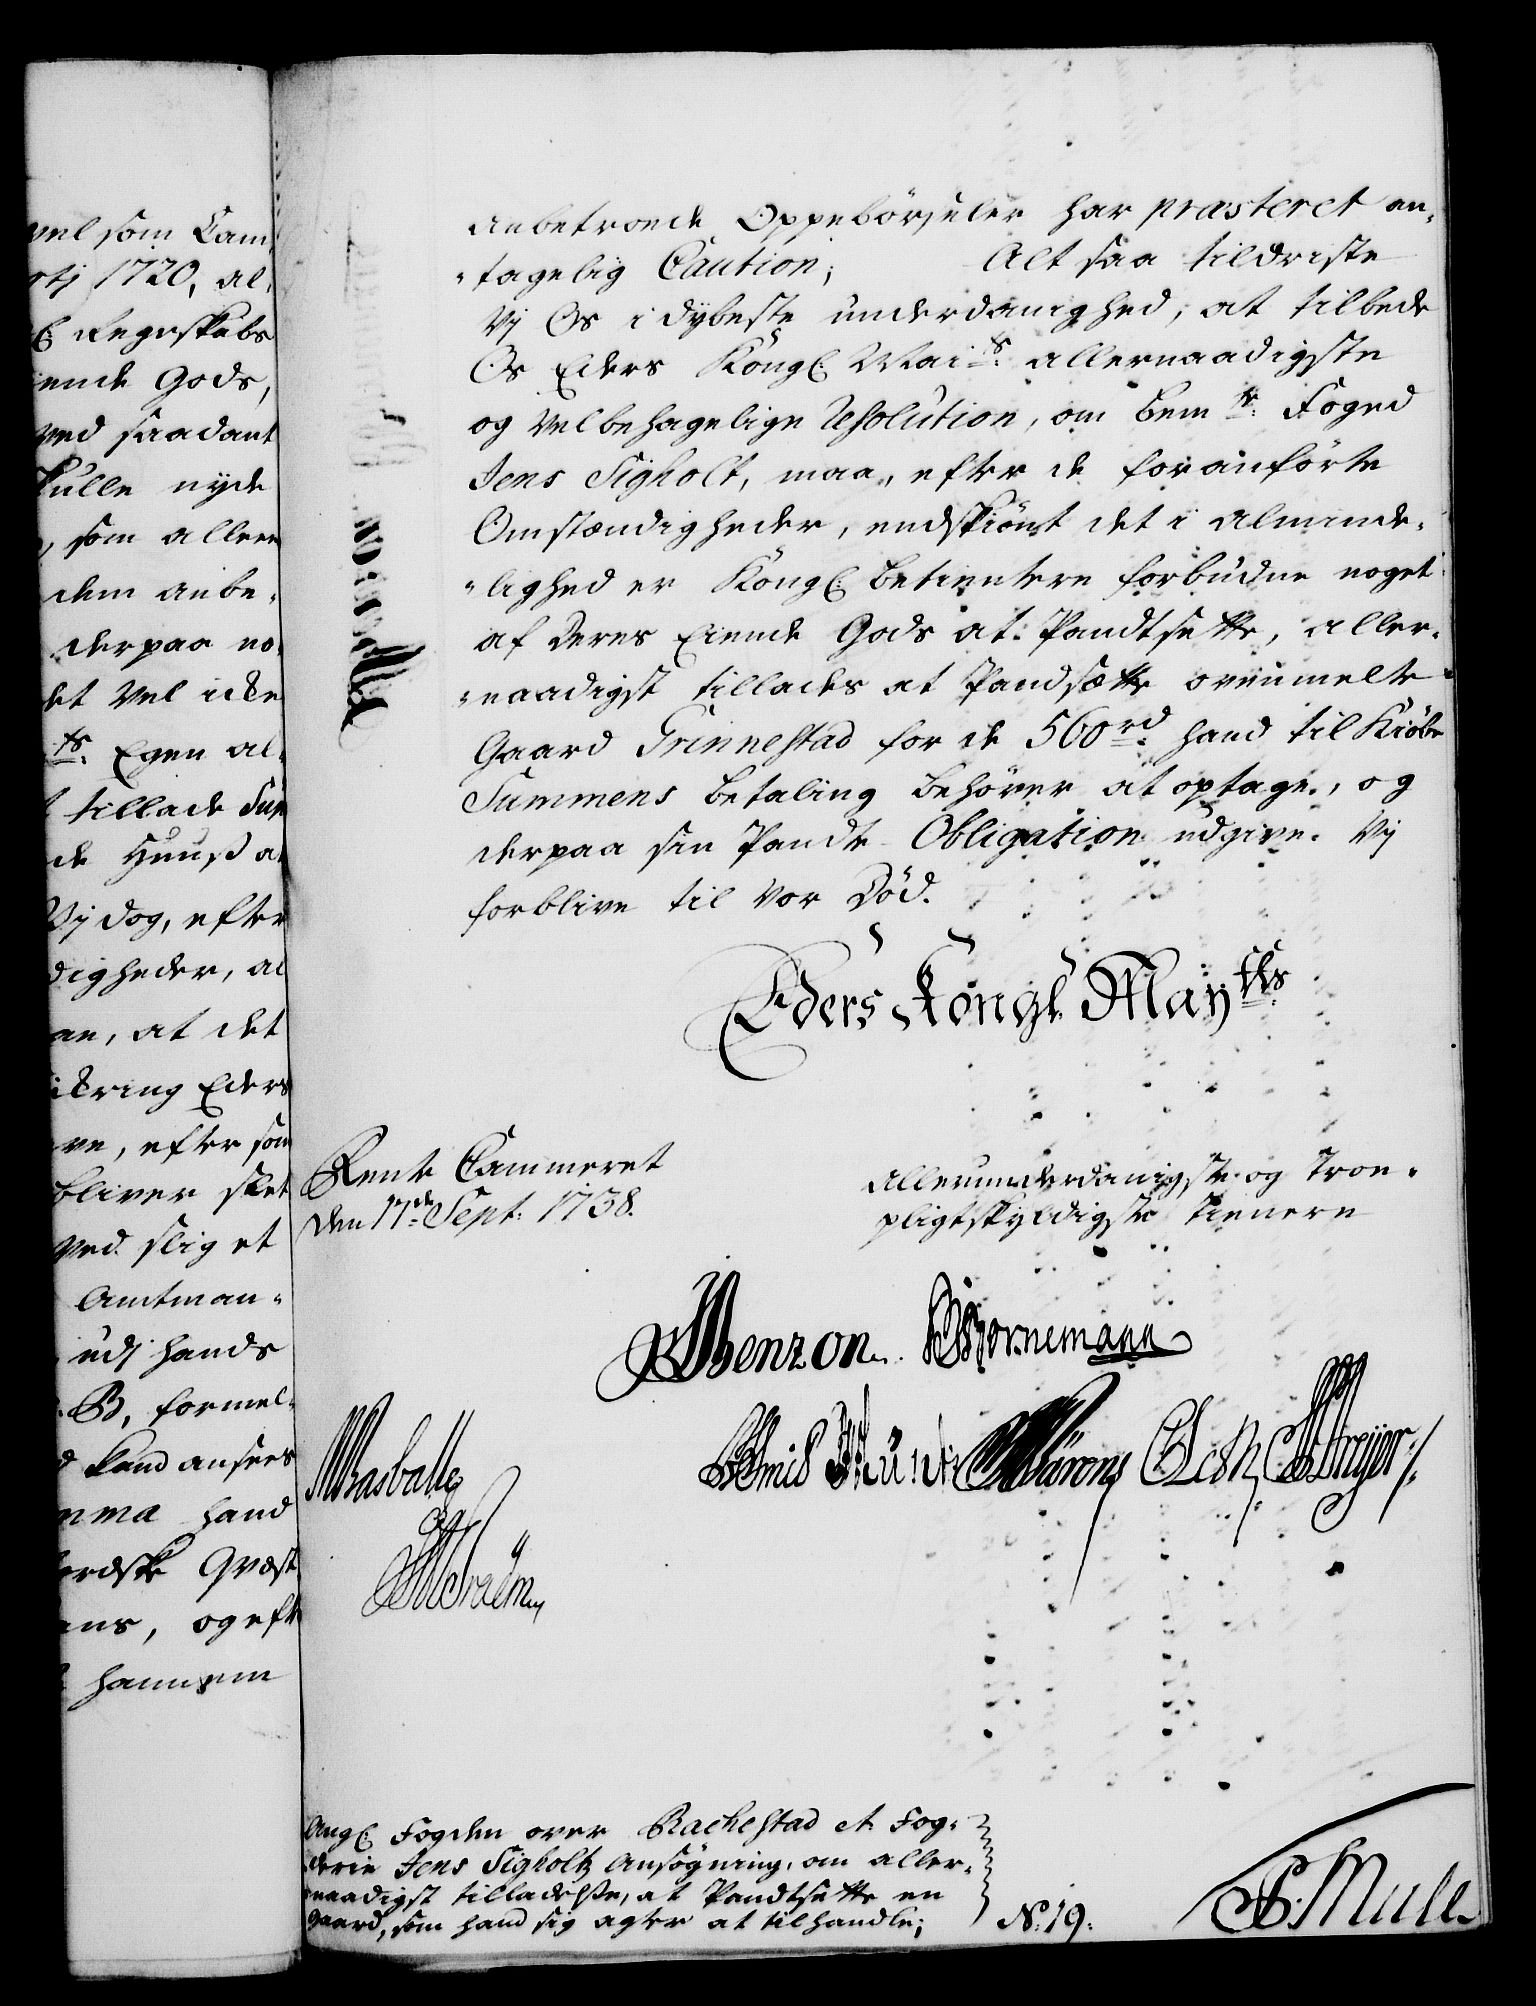 vel som Cam
rtj 1720, al-
Regnskabs
ende Gods,
ved saadant
skulle nyde
, som alleene
dem anbe-
derpaa no-
det vel icke
ts. Egen al-
tillade Sup
de Huuss a
Vj dog, efter
digheder, al
an, at det
ickring Eders
ve, efter som
bliver slet
ved slig et
Amtman-
udj hands
B, formel-
kand ansees
mma hand
ordske Qvæst
ans, og efte
hannem
anbetroede Oppebörseler har præsteret an-
-tagelig Caution; Alt saa tildriste
Vj Os i dybeste underdanighed, at tilbede
Os Eders Kongl: Maits: allernaadigste
og velbehagelige Resolution, om bemte: Foged
Jens Sigholt, maa, efter de foranförte
Omstændigheder, endskiönt det i alminde-
-lighed er Kongl: betientere forbudne noget
af deres Eiende Gods at Pandtsette, aller-
-naadigst tillades at Pandsætte ovenmelte
Gaard Frinnestad for de 560 rd: hand til Kiöbe
Summens betaling behöver at optage, og
derpaa sin Pandt Obligation udgive. Vj
forblive til vor Död.
Eders Kongl. Maytts:
Rente Cammeret
den 17de Sept: 1738.
allerunderdanigste og Troe-
pligtskyldigste tienere
Benzon. Bornemann
Basballe Smid Munk
Dreyer
Angl: Fogden over Rachestad etc. Fog-
derie Jens Sigholtz Ansögning, om aller-
naadigst tilladelsse, at Pandtsette en
Gaard, som hand sig agter at tilhandle;
No: 19.
Müll.